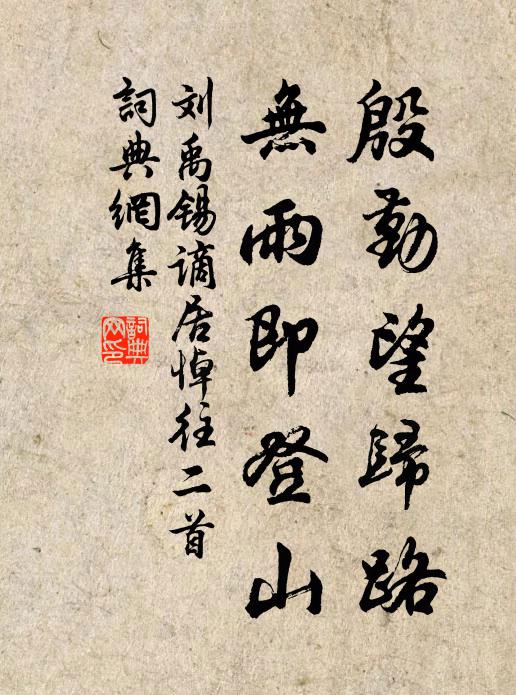 殷勤望歸路
無雨即登山
刘禹锡謫居悼往二首
詞典網集
詞典網印